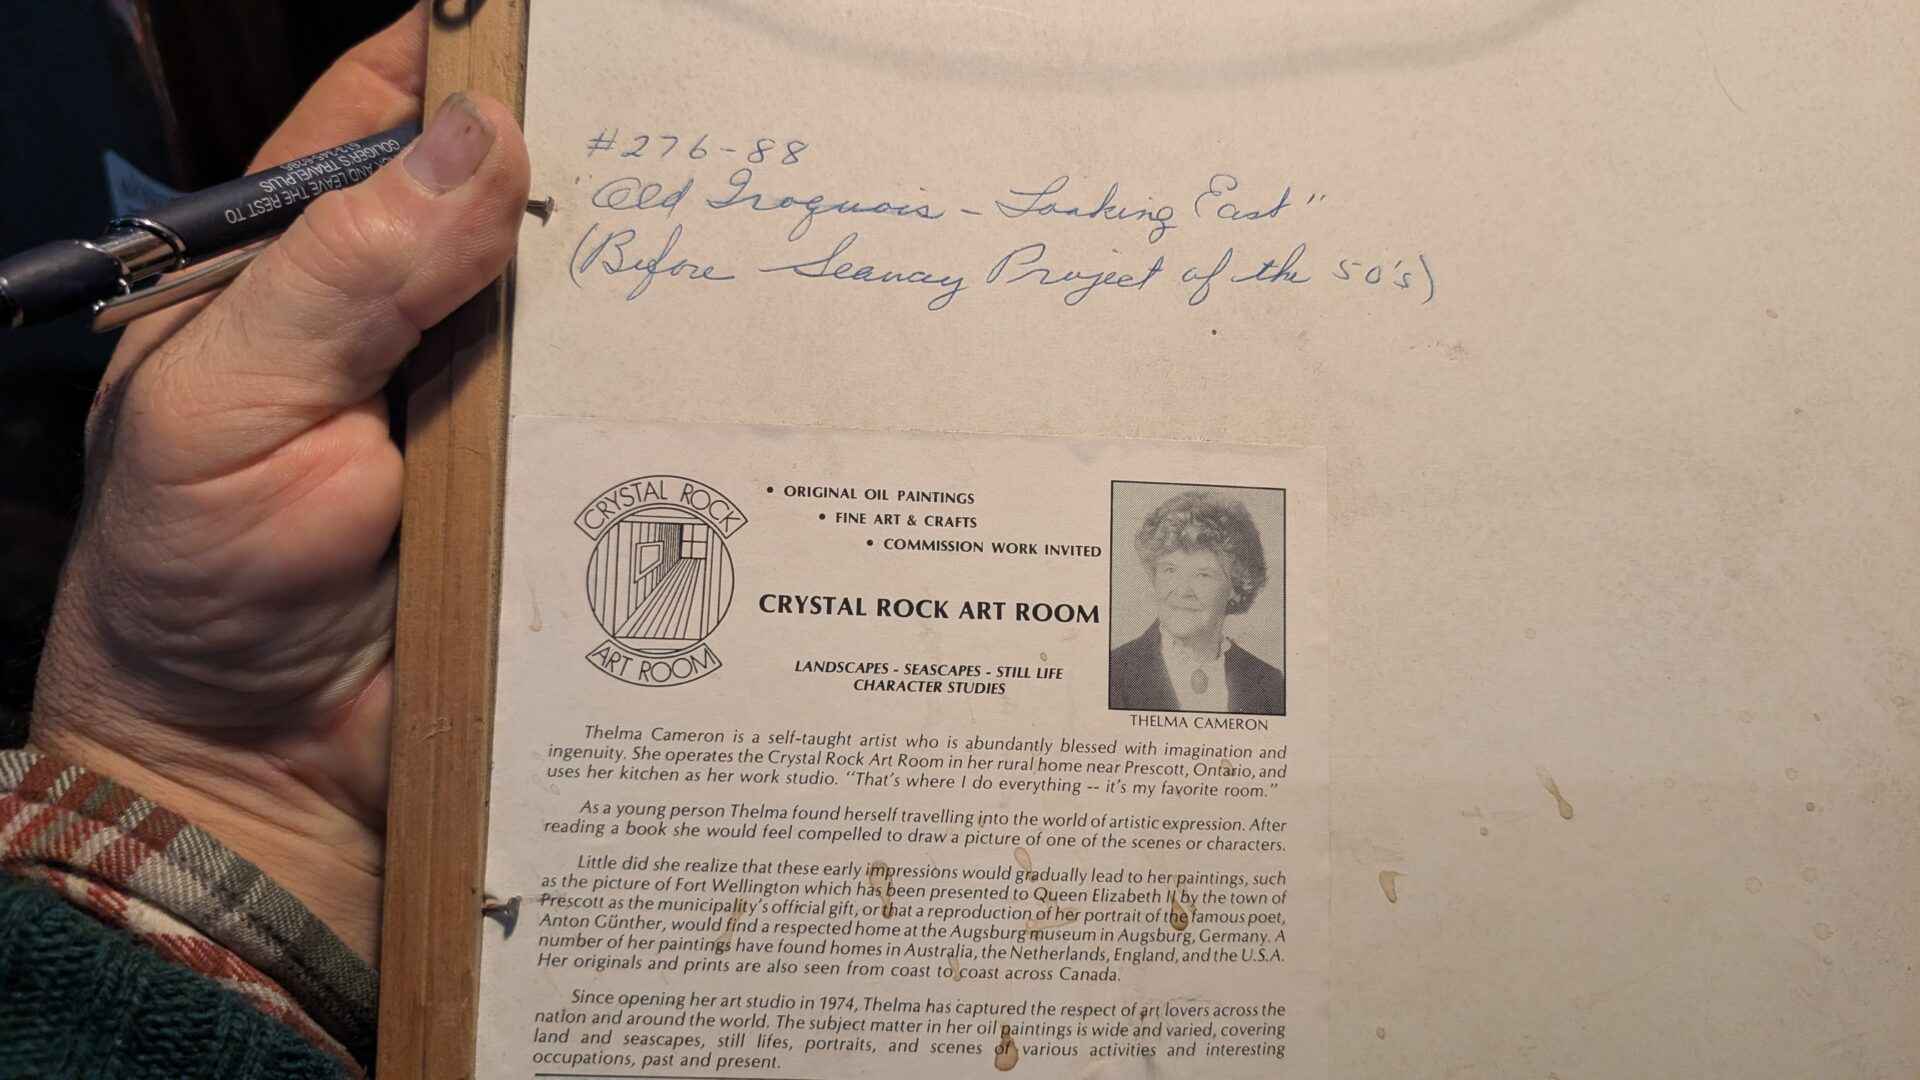 #276-88
"Old Iroquois - Looking East"
(Before Seaway Project of the 50's)
AND LEAVE THE REST TO
GOLIGER'S TRAVELPLUS
CRYSTAL ROCK
ART ROOM
• ORIGINAL OIL PAINTINGS
• FINE ART & CRAFTS
• COMMISSION WORK INVITED
CRYSTAL ROCK ART ROOM
LANDSCAPES - SEASCAPES - STILL LIFE
CHARACTER STUDIES
THELMA CAMERON
Thelma Cameron is a self-taught artist who is abundantly blessed with imagination and
ingenuity. She operates the Crystal Rock Art Room in her rural home near Prescott, Ontario, and
uses her kitchen as her work studio. "That's where I do everything -- it's my favorite room."
As a young person Thelma found herself travelling into the world of artistic expression. After
reading a book she would feel compelled to draw a picture of one of the scenes or characters.
Little did she realize that these early impressions would gradually lead to her paintings, such
as the picture of Fort Wellington which has been presented to Queen Elizabeth II by the town of
Prescott as the municipality's official gift, or that a reproduction of her portrait of the famous poet,
Anton Günther, would find a respected home at the Augsburg museum in Augsburg, Germany. A
number of her paintings have found homes in Australia, the Netherlands, England, and the U.S.A.
Her originals and prints are also seen from coast to coast across Canada.
Since opening her art studio in 1974, Thelma has captured the respect of art lovers across the
nation and around the world. The subject matter in her oil paintings is wide and varied, covering
land and seascapes, still lifes, portraits, and scenes of various activities and interesting
occupations, past and present.